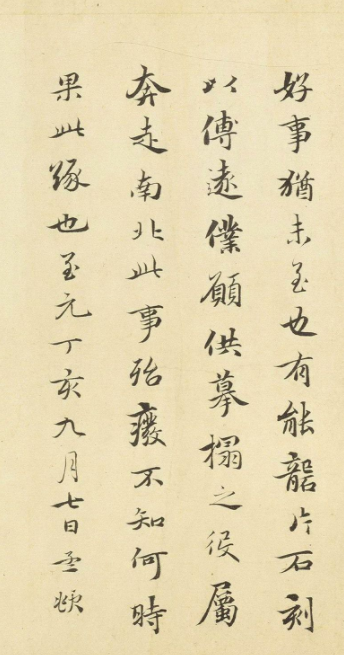 好事猶未至也有能龍片石刻
以傳遠僕願供摹搨之役屬
奔走南北此事殆廢不知何時
果此緣也至元丁亥九月七日孟頫